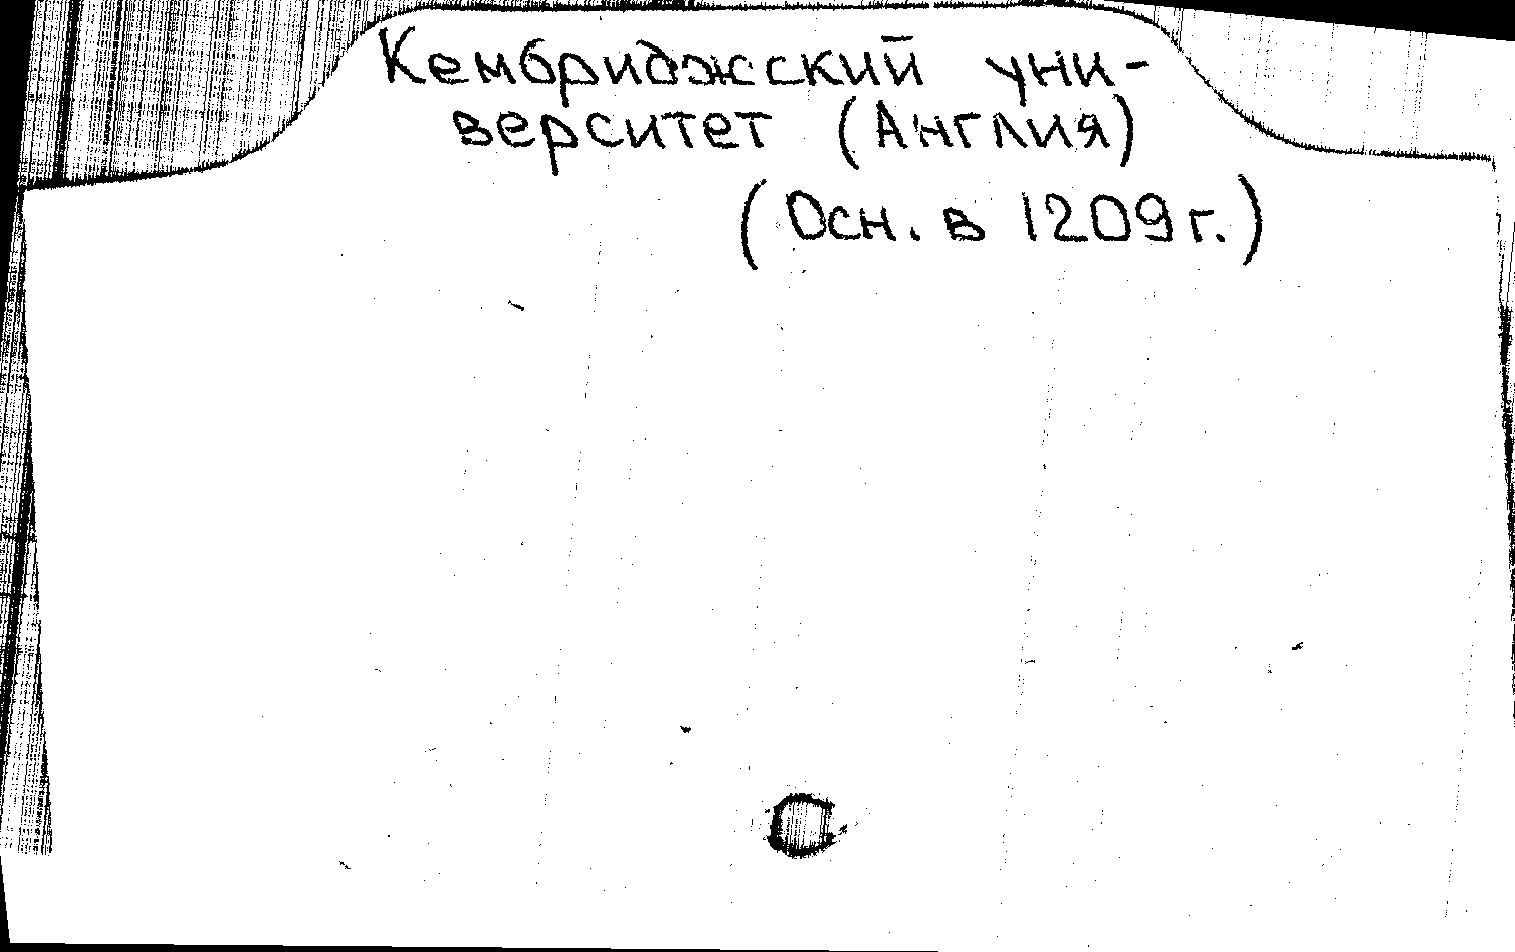 Кембриджский уни-
верситет (Англия)
(Осн. в 1209 г.)